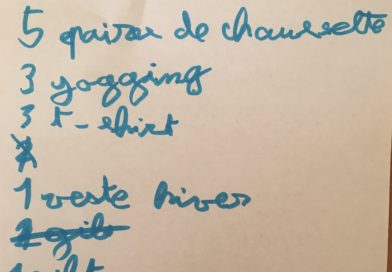 5 paires de chaussette
3 yogging
3 t-shirt
1 veste hiver